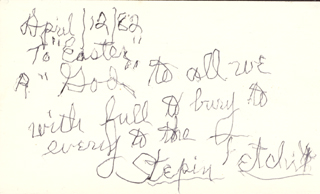 April/12/82
To "Easter,"
A "God to all we
with full to bury to
every to the
Stepin Fetchit